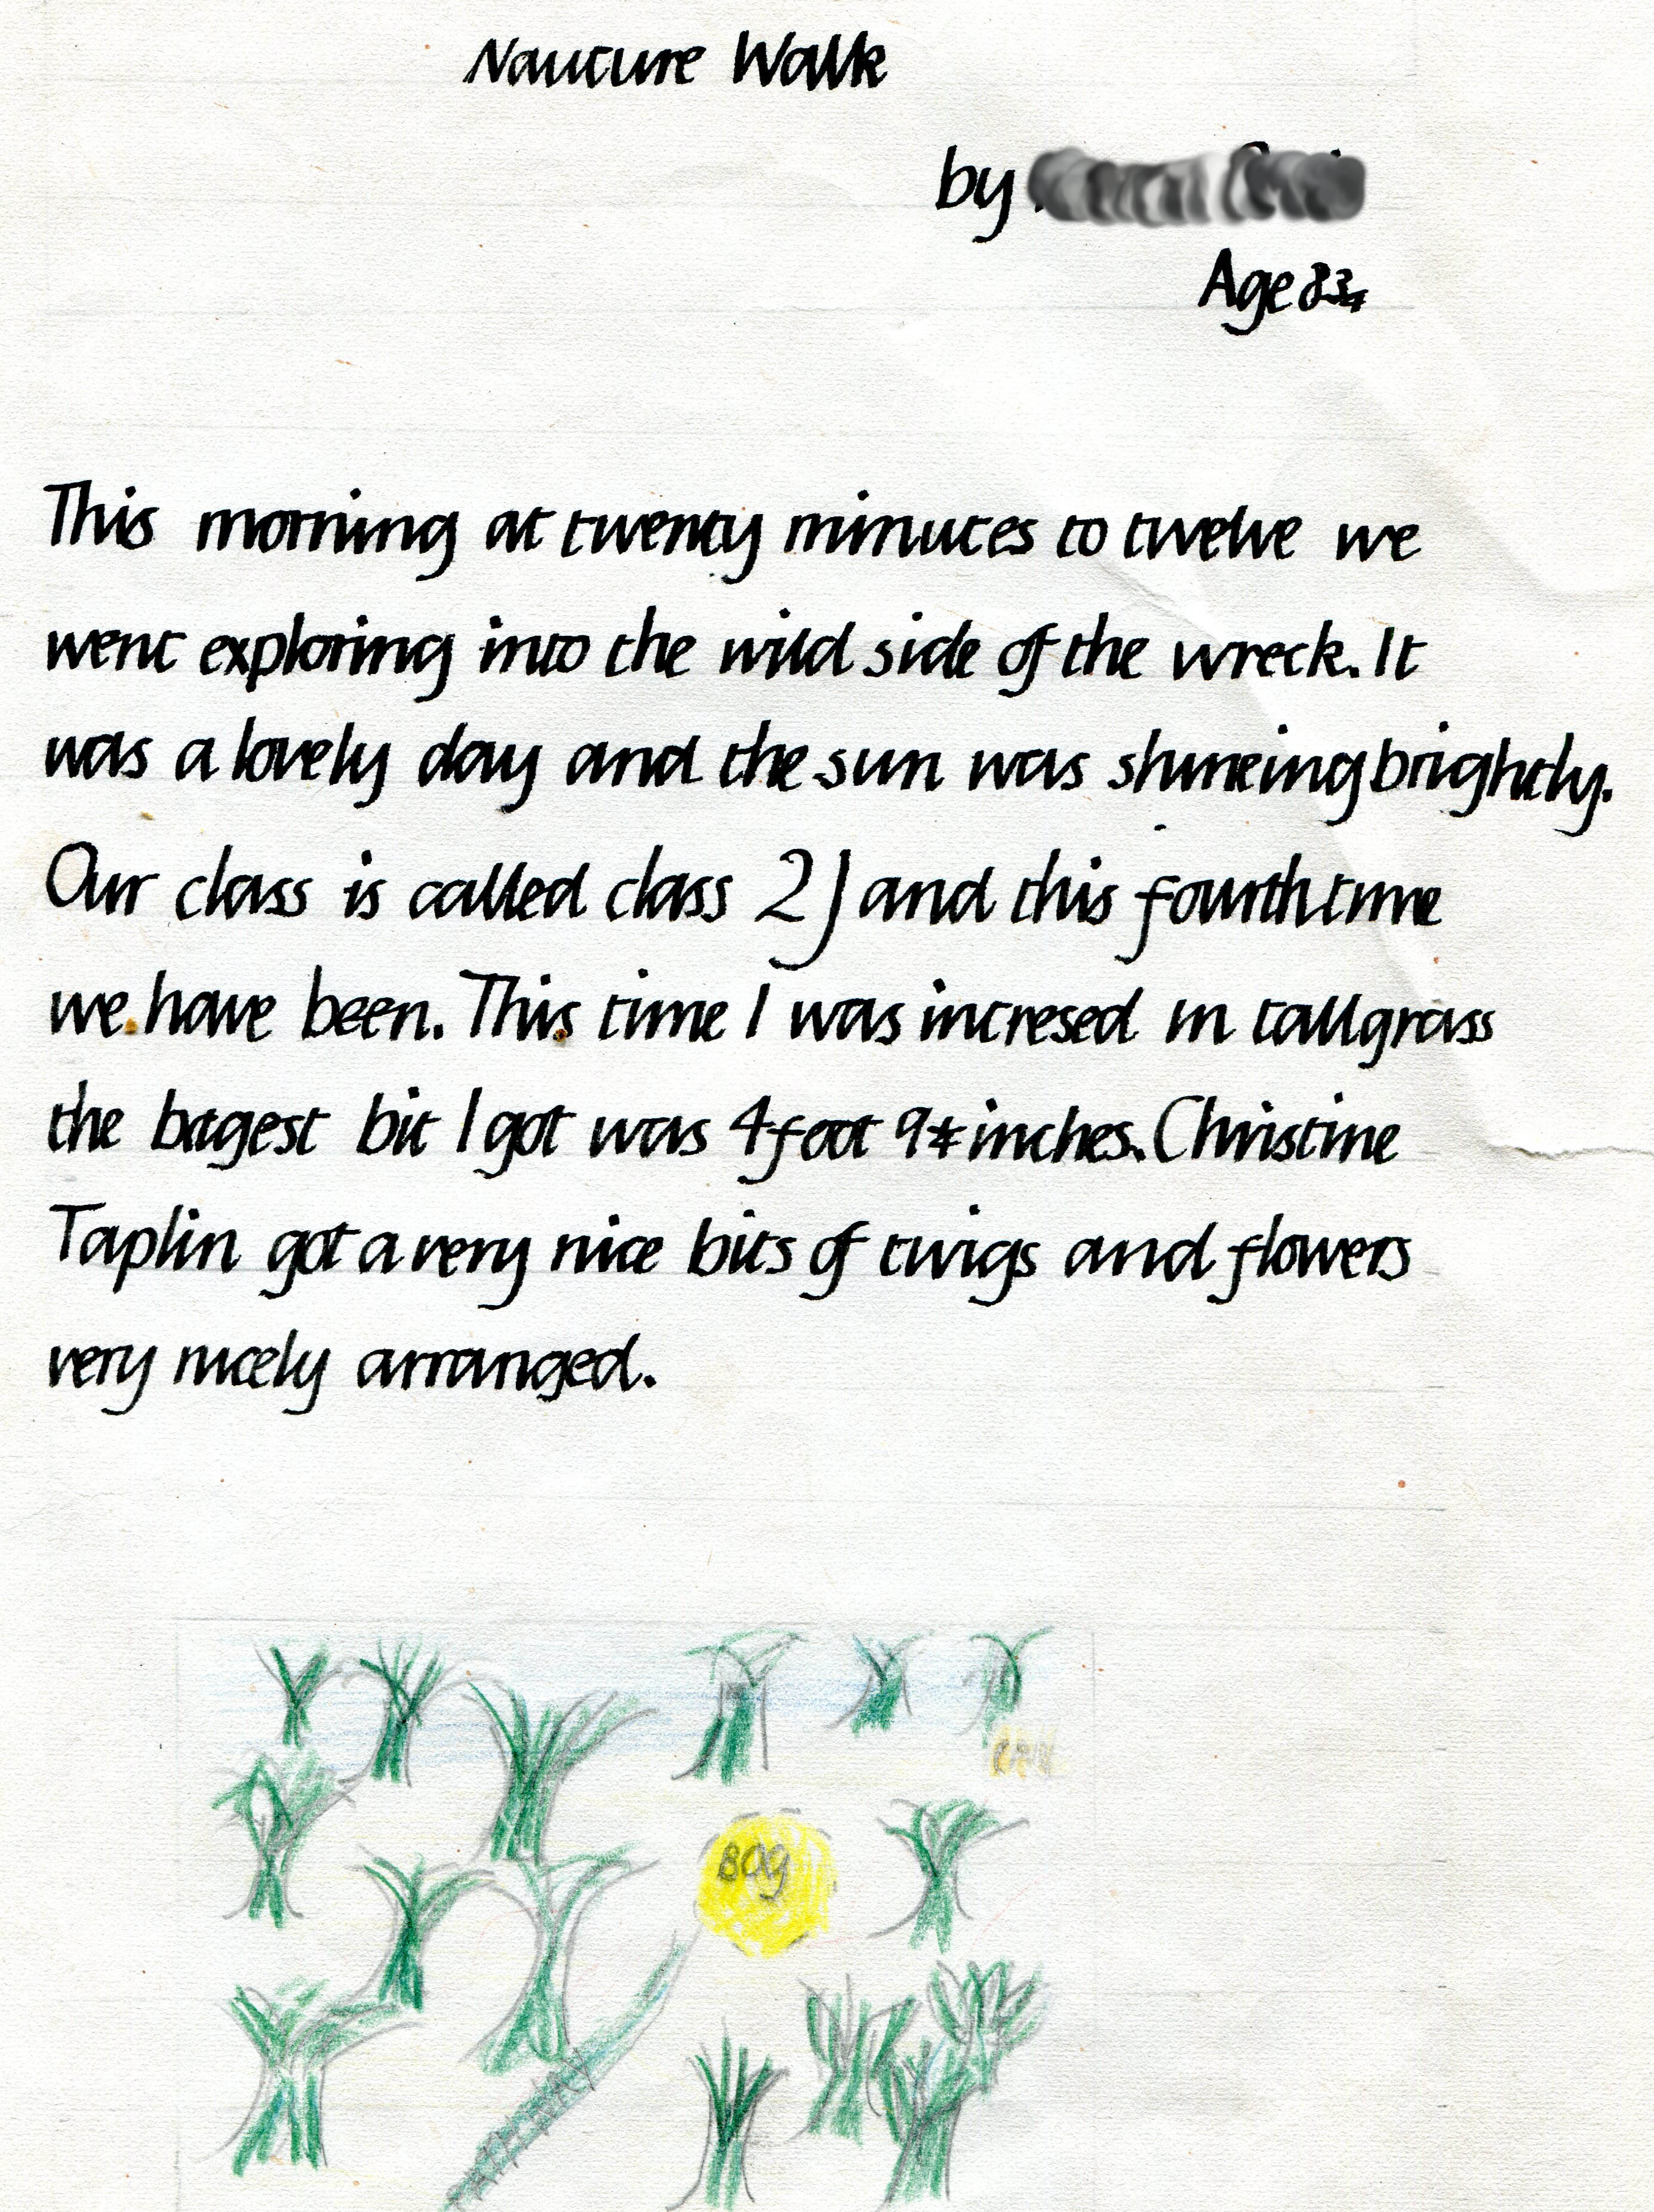 Nauture Walk
by
Age 8 3/4
This morning at twenty minutes to twelve we
went exploring into the wild side of the wreck. It
was a lovely day and the sun was shineing brightly.
Our class is called class 2J and this fourth time
we have been. This time I was incresed in tall grass
the bigest bit I got was 4 foot 9 inches. Christine
Taplin got a very nice bits of twigs and flowers
very nicely arranged.
BOg